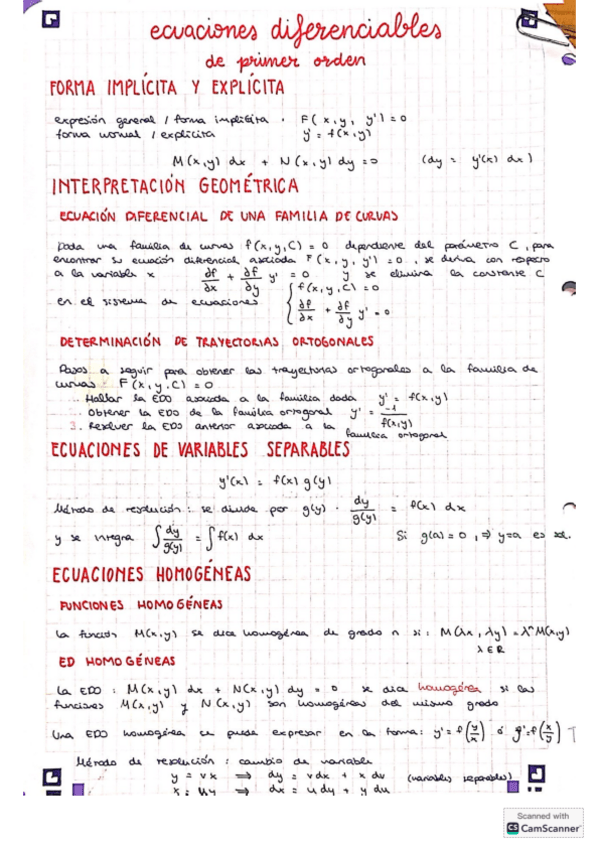 ecuaciones diferenciables
de primer orden
FORMA IMPLÍCITA Y EXPLÍCITA
expresión general / forma implícita · F(x,y,y')=0
forma normal / explícita y'=f(x,y)
M(x,y) dx + N(x,y) dy = 0 (dy = y'(x) dx)
INTERPRETACIÓN GEOMÉTRICA
ECUACIÓN DIFERENCIAL DE UNA FAMILIA DE CURVAS
Dada una familia de curvas f(x,y,C) = 0 dependiente del parámetro C, para
encontrar su ecuación diferencial asociada F(x,y,y')=0, se deriva con respecto
a la variable x ∂f/∂x + ∂f/∂y y' = 0 y se elimina la constante C
en el sistema de ecuaciones { f(x,y,C) = 0
∂f/∂x + ∂f/∂y y' = 0
DETERMINACIÓN DE TRAYECTORIAS ORTOGONALES
Pasos a seguir para obtener las trayectorias ortogonales a la familia de
curvas F(x,y,C)=0
1. Hallar la EDO asociada a la familia dada y' = f(x,y)
2. Obtener la EDO de la familia ortogonal y' = -1/f(x,y)
3. Resolver la EDO anterior asociada a la familia ortogonal
ECUACIONES DE VARIABLES SEPARABLES
y'(x) = f(x) g(y)
Método de resolución: se divide por g(y) · dy/g(y) = f(x) dx
y se integra ∫ dy/g(y) = ∫ f(x) dx Si g(a)=0, ⇒ y=a es sol.
ECUACIONES HOMOGÉNEAS
FUNCIONES HOMOGÉNEAS
La función M(x,y) se dice homogénea de grado n si: M(λx, λy) = λⁿM(x,y)
λ∈R
ED HOMOGÉNEAS
La EDO: M(x,y) dx + N(x,y) dy = 0 se dice homogénea si las
funciones M(x,y) y N(x,y) son homogéneas del mismo grado
Una EDO homogénea se puede expresar en la forma: y'=f(y/x) ó y'=f(x/y)
Método de resolución: cambio de variable
y = vx ⇒ dy = vdx + x dv (variables separables)
x = uy ⇒ dx = u dy + y du
Scanned with
CS CamScanner